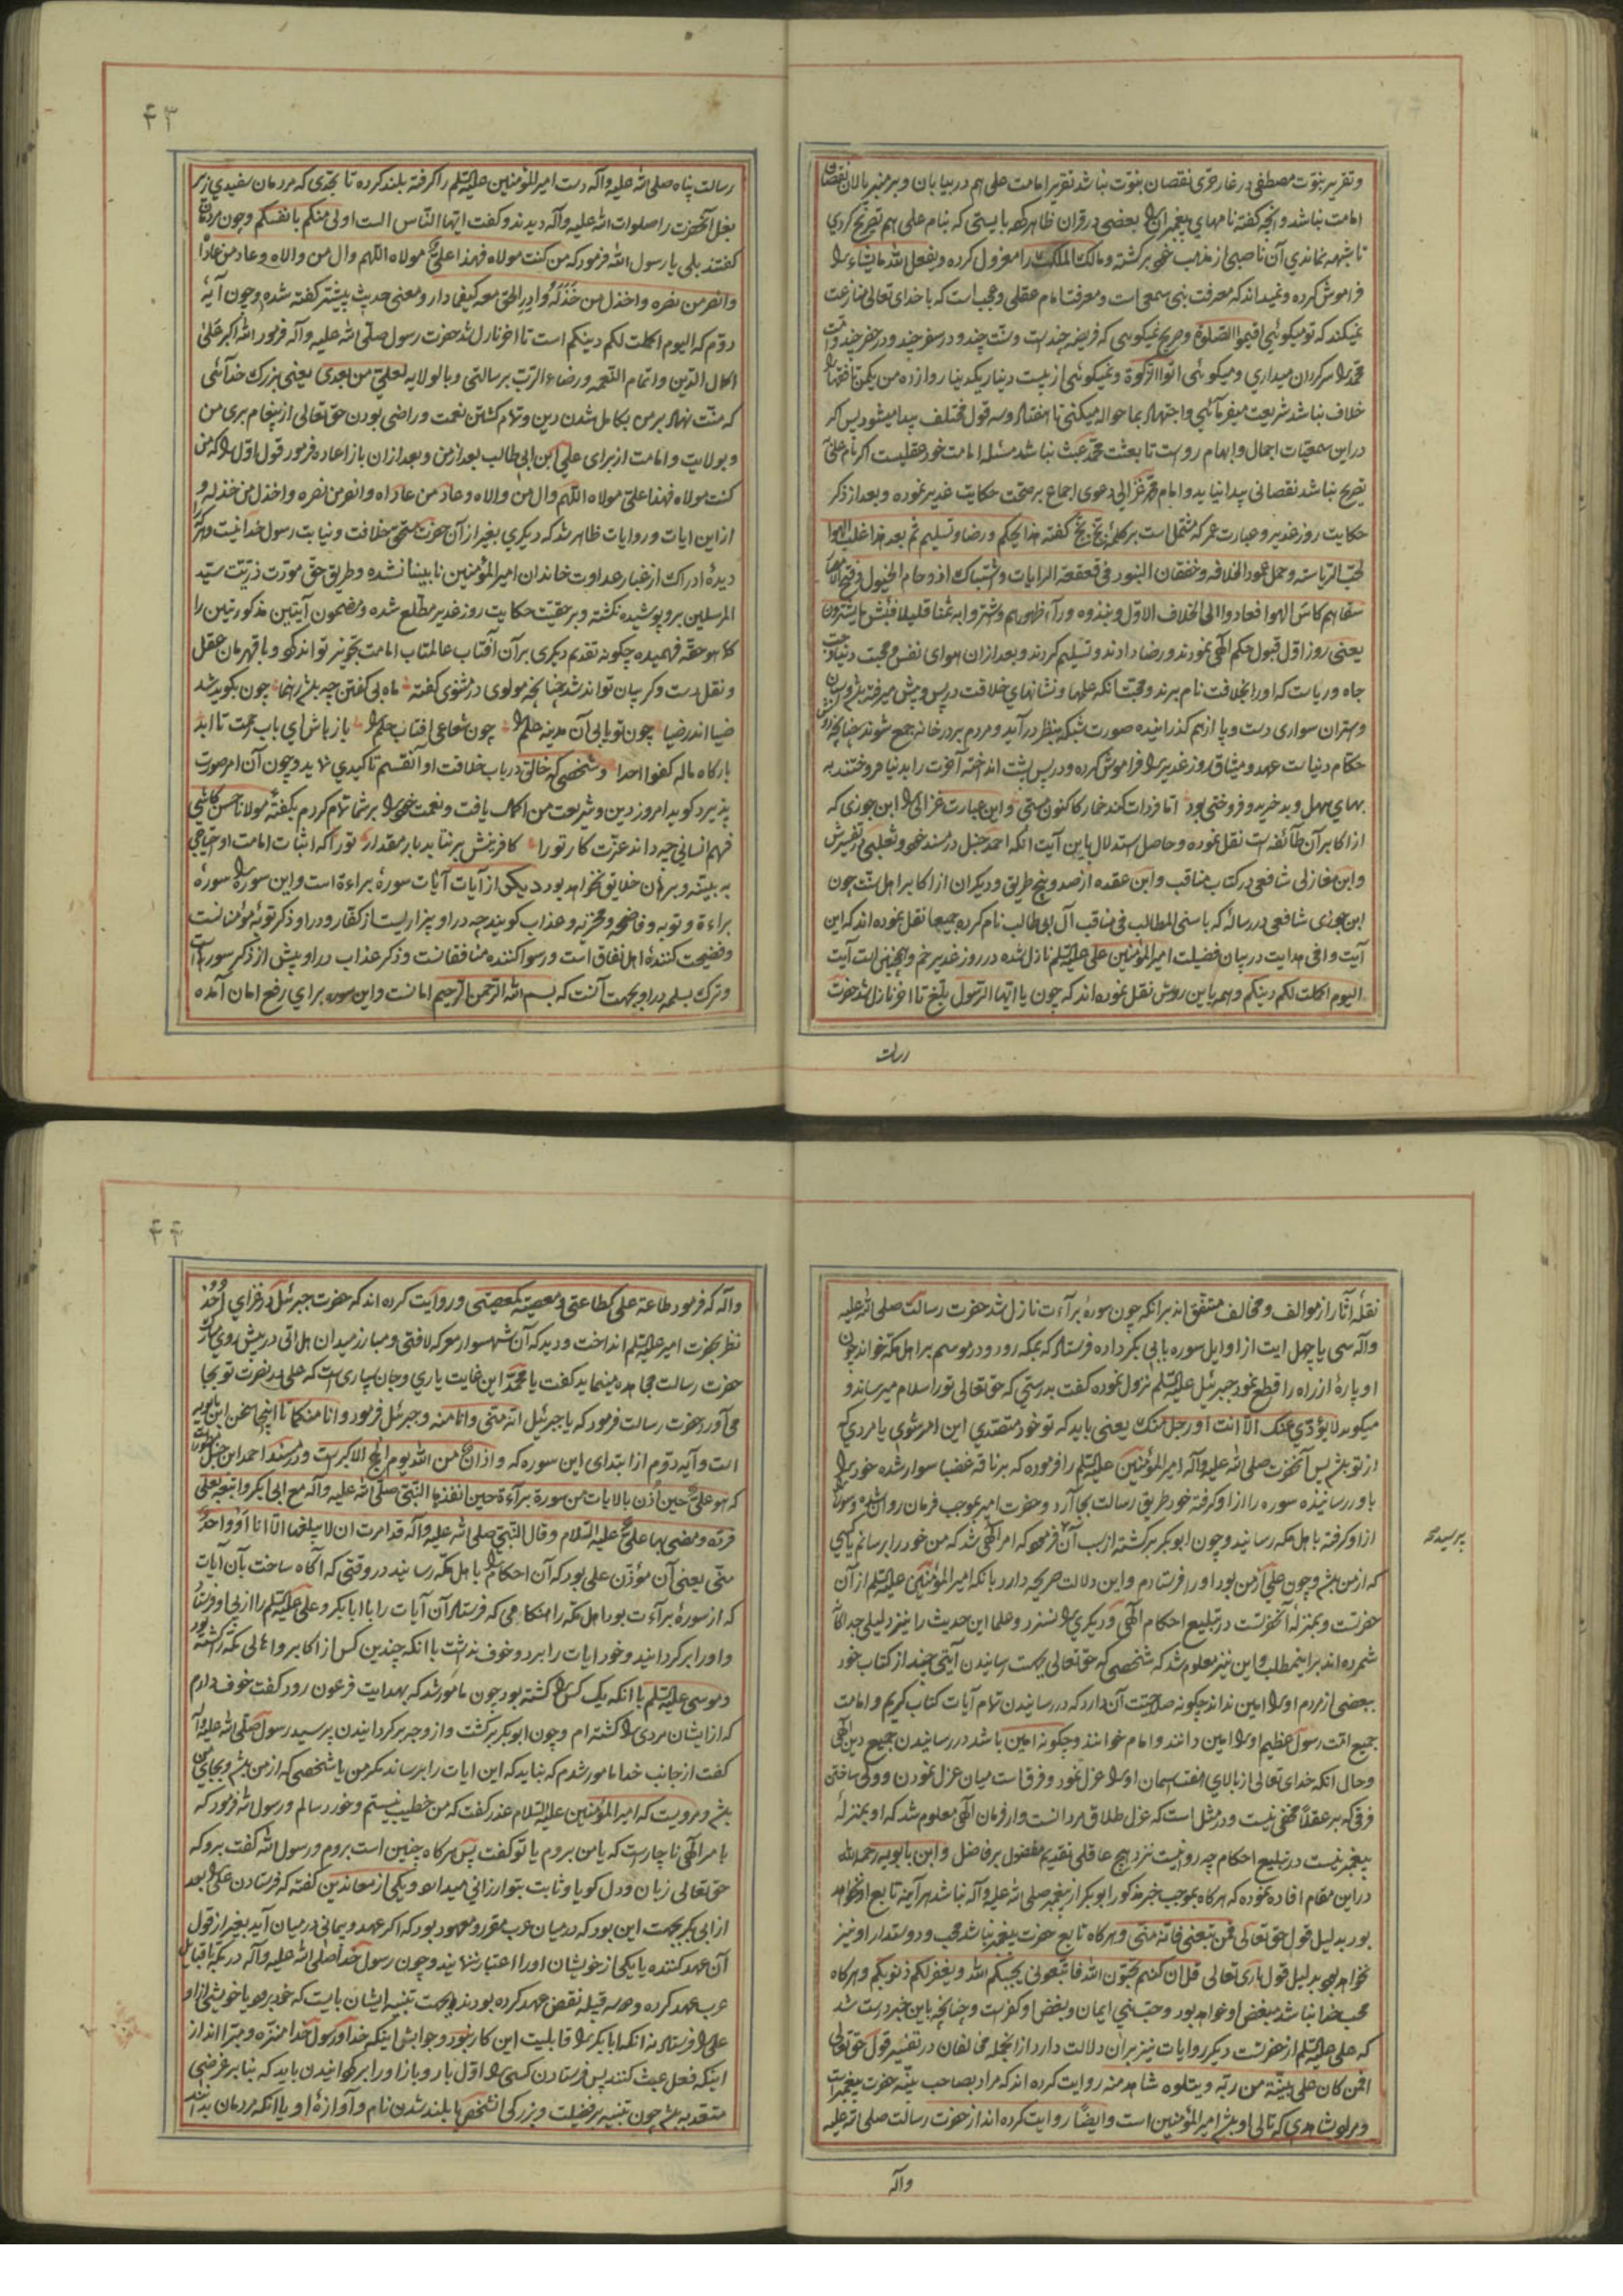 و تقریر نبوّت مصطفی در غار حری نقصان نبوّت نباشد تقریر امامت علی هم در بیابان و بر منبر پالان نقصان
امامت نباشد و آنچه گفته نامهای پیغمبران را بعضی در قران ظاهر کرد بایستی که بنام علی هم تصریح کردی
تا شبهه نماندی آن ناصبی از مذهب خود برگشته و مالک الملک را معزول کرده و یفعل الله ما یشاء را
فراموش کرده و نمیداند که معرفت نبی سمعی است و معرفت امام عقلی و عجب است که با خدای تعالی منازعت
نمیکند که تو میگوئی اقیموا الصلوة و صریح نمیگوئی که فریضه چند است و سنّت چند و در سفر چند و در حضر چند و امّت
محمّد را سرگردان میداری و میگوئی اتوا الزکوة و نمیگوئی از بیست دینار یکدینار و از ده من یکمن تا فقها را
خلاف نباشد شریعت میفرمائی و اجتهاد بما حواله میکنی تا هفتاد و سه قول مختلف پیدا میشود پس اگر
در این سمعیّات اجمال و ابهام رواست تا بعثت محمّد عبث نباشد مسئله امامت خود عقلیست اگر نام علی
تصریح نباشد نقصانی پیدا نیاید و امام محمّد غزالی دعوی اجماع بر صحّت حکایت غدیر نموده و بعد از ذکر
حکایت روز غدیر و عبارت عمر که مشتمل است بر کلمه بخّ بخّ گفته هذا تحکیم و رضا و تسلیم ثم بعد هذا غلب الهوا
لحبّ الریاسته و حمل عمود الخلافه و خفقان البنود فی قعقعة الرایات و اشتباک ازدحام الخیول و فتح الامصار
سقاهم کاس الهوا فعادوا الی الخلاف الاوّل و نبذوه وراء ظهورهم و اشتروا به ثمنا قلیلا فبئس ما یشترون
یعنی روز اوّل قبول حکم الهی نمودند و رضا دادند و تسلیم کردند و بعد از ان هوای نفس و محبت دنیا و حبّ
جاه و ریاست که او را بخلافت نام برند و محبّت آنکه علمها و نشانهای خلافت در پس و پیش میرفته باشد و سپاه
و بهتران سواری دست و پا از هم گذرانیده صورت شبکه بنظر در آید و مردم بر در خانه جمع شوند چنانچه در پیش
حکّام دنیاست عهد و میثاق روز غدیر را فراموش کرده و در پس پشت انداخته آخرت را بدنیا فروختند به
بهای سهل و بد خرید و فروختی بود امّا فردات کند خمار کاکنون مستی و این عبارت غزالی را ابن جوزی که
از اکابر آن طائفه است نقل نموده و حاصل استدلال باین آیت آنکه احمد حنبل در مسند خود و ثعلبی در تفسیرش
و ابن مغازلی شافعی در کتاب مناقب و ابن عقده از صد و پنج طریق و دیگران از اکابر اهل سنّت چون
ابن جوزی شافعی در رساله که باسنی المطالب فی مناقب آل ابی طالب نام کرده جمیعا نقل نموده اند که این
آیت وافی هدایت در بیان فضیلت امیر المؤمنین علی علیه السّلم نازل شده در روز غدیر خم و همچنین است آیت
الیوم اکملت لکم دینکم و همه باین روش نقل نموده اند که چون یا ایّها الرّسول بلّغ تا اخر نازل شد حضرت
رسالت
۴۳
رسالت پناه صلی الله علیه و آله دست امیر المؤمنین علیه السّلم را گرفته بلند کرده تا بحدّی که مردمان سفیدی زیر
بغل آنحضرت را صلوات الله علیه و آله دیدند و گفت ایّها النّاس الست اولی منکم بانفسکم و چون مردمان
گفتند بلی یا رسول الله فرمود که من کنت مولاه فهذا علیّ مولاه اللّهم وال من والاه و عاد من عاداه
وانصر من نصره واخذل من خذله و ادر الحق معه کیفما دار و معنی حدیث پیشتر گفته شده و چون آیهٔ
دوّم که الیوم اکملت لکم دینکم است تا اخر نازل شد حضرت رسول صلّی الله علیه و آله فرمود الله اکبر علی
اکمال الدّین و اتمام النّعمه و رضاء الرّب برسالتی و بالولایه لعلیّ من بعدی یعنی بزرگ خدائی
که منّت نهاد بر من بکامل شدن دین و تمام گشتن نعمت و راضی بودن حق تعالی از پیغام بری من
و بولایت و امامت از برای علی ابن ابی طالب بعد از من و بعد از ان باز اعاده فرمود قول اوّل را که من
کنت مولاه فهذا علیّ مولاه اللّهم وال من والاه و عاد من عاداه وانصر من نصره واخذل من خذله و
از این ایات و روایات ظاهر شد که دیگری بغیر از آن حضرت مستحق خلافت و نیابت رسول خدا نیست و هر که
دیدهٔ ادراک از غبار عداوت خاندان امیر المؤمنین نابینا نشده و طریق حق مودّت ذرّیّت سیّد
المرسلین بر او پوشیده نگشته و بر حقیّت حکایت روز غدیر مطّلع شده و مضمون آیتین مذکورتین را
کما هو حقّه فهمیده چگونه تقدیم دیگری بر آن آفتاب عالمتاب امامت تجویز تواند کرد و با قهرمان عقل
و نقل دست و گریبان تواند شد چنانچه مولوی در مثنوی گفته ماه بی گفتن چو باشد رهنما چون بگوید شد
ضیا اندر ضیا چون تو بابی آن مدینه علم را چون شعاعی افتاب حلم را باز باش ای باب رحمت تا ابد
بارگاه ما له کفوا احدا و شخصی که خالق در باب خلافت او آنقسم تاکیدی نماید و چون آن امر صورت
پذیرد گوید امروز دین و شریعت من اکمال یافت و نعمت خود را بر شما تمام کردم بگفتهٔ مولانا حسن کاشی
فهم انسانی چه داند عزّت کار تو را کافرینش بر نتابد بار مقدار تو را که اثبات امامت او احتیاجی
به بیّنه و برهان خلایق نخواهد بود دیگر از آیات آیات سورهٔ براءة است و این سوره را سورهٔ
براءة و توبه و فاضحه و مخزیه و عذاب گویند چه در او بیزاریست از کفّار و در او ذکر توبهٔ مؤمنانست
و فضیحت کنندهٔ اهل نفاق است و رسوا کننده منافقانست و ذکر عذاب در او بیش از ذکر سورهاست
و ترک بسمله در او بجهت آنست که بسم الله الرّحمن الرّحیم امانست و این سوره برای رفع امان آمده
نقلهٔ آثار از موالف و مخالف متفّق اند بر انکه چون سورهٔ برآءت نازل شد حضرت رسالت صلی الله علیه
و آله سی یا چهل ایت از اوایل سوره بابی بکر داده فرستاد که بمکه رود و در موسم بر اهل مکه خواند چون
او پارهٔ از راه را قطع نمود جبرئیل علیه السّلم نزول نموده گفت بدرستی که حق تعالی تو را سلام میرساند و
میگوید لا یؤدّی عنک الّا انت او رجل منک یعنی باید که تو خود متقصدی این امر شوی یا مردی که
از تو باشد پس آنحضرت صلی الله علیه و آله امیر المؤمنین علیه السّلم را فرموده که بر ناقه غضبا سوار شده خود را
باو رسانیده سوره را از او گرفته خود طریق رسالت بجا آرد و حضرت امیر بموجب فرمان روان شده و سوره را
از او گرفته باهل مکه رسانید و چون ابوبکر برگشته از سبب آن فرمود که امر الهی شد که من خود را برسانم یا کسی
پرسید
که از من باشد و چون علی از من بود او را فرستادم و این دلالت صریحه دارد بانکه امیر المؤمنین علیه السّلم از آن
حضرتست و بمنزلهٔ آنحضرتست در تبلیغ احکام الهی و دیگری را نسزد و علما این حدیث را نیز دلیلی جداگانه
شمرده اند بر اینمطلب و این نیز معلوم شد که شخصی که حق تعالی بجهت رسانیدن آیتی چند از کتاب خود
ببعضی از مردم او را امین نداند چگونه صلاحیّت آن دارد که در رسانیدن تمام آیات کتاب کریم و امامت
جمیع امّت رسول عظیم او را امین دانند و امام خوانند و چگونه امین باشد در رسانیدن جمیع دین الهی
و حال انکه خدای تعالی از بالای هفت اسمان او را عزل نمود و فرق است میان عزل نمودن و ولی ساختن
فرقی که بر عقلا مخفی نیست و در مثل است که عزل طلاق مردانست و از فرمان الهی معلوم شد که او بمنزلهٔ
پیغمبر نیست در تبلیغ احکام چه رواست نزد هیچ عاقلی تقدیم مفضول بر فاضل و ابن بابویه رحمه الله
در این مقام افاده نموده که هر گاه بموجب خبر مذکور ابوبکر از پیغمبر صلی الله علیه و آله نباشد هر آینه تابع او نخواهد
بود بدلیل قول حق تعالی فمن تبعنی فانّه منّی و هر گاه تابع حضرت پیغمبر نباشد محب و دوستدار او نیز
نخواهد بود بدلیل قول باری تعالی قل ان کنتم تحبّون الله فاتّبعونی یحببکم الله و یغفر لکم ذنوبکم و هر گاه
محب خدا نباشد مبغض او خواهد بود و حبّ نبی ایمان و بغض او کفر است و چنانچه باین خبر درست شد
که علی علیه السّلم از حضرتست دیگر روایات نیز بر ان دلالت دارد از انجمله مخالفان در تفسیر قول حق تعالی
افمن کان علی بیّنة من ربّه و یتلوه شاهد منه روایت کرده اند که مراد بصاحب بیّنه حضرت پیغمبر است
و مراد بشاهدی که تالی او باشد امیر المؤمنین است و ایضًا روایت کرده اند از حضرت رسالت صلی الله علیه
و آله
۴۴
و آله که فرمود طاعة علی کطاعتی و معصیته کمعصیتی و روایت کرده اند که حضرت جبرئیل در غزای احُد
نظر بحضرت امیر علیه السّلم انداخت و دید که آن شهسوار معرکه لا فتی و مبارز میدان هل اتی در پیش روی مبارک
حضرت رسالت مجاهده مینماید گفت یا محمّد این غایت یاری و جان سپاری است که علی در نصرت تو بجا
می آورد حضرت رسالت فرمود که یا جبرئیل انّه منّی و انا منه و جبرئیل فرمود و انا منکما تا اینجا سخن ابن بابویه
است و آیه دوّم از ابتدای این سوره که و اذان من الله یوم الحج الاکبر است و در مسند احمد ابن حنبل مذکور است
که هو علیّ حین اذن بالایات من سورة برآءة حین انفذها النّبی صلّی الله علیه و آله مع ابی بکر و اتبعه بعلی
فردّه و مضی بها علیّ علیه السّلام و قال النّبی صلی الله علیه و آله قد امرت ان لا یبلغها الّا انا او واحد
منّی یعنی آن مؤذّن علی بود که آن احکام را باهل مکّه رسانید در وقتی که آگاه ساخت بآن آیات
که از سورهٔ برآءت بود اهل مکّه را هنگامی که فرستاد آن آیات را با ابا بکر و علی علیه السّلم را از پی او فرستاد
و او را برگردانید و خود ایات را برد و خوف نداشت با انکه چندین کس از اکابر و اهالی مکّه را کشته بود
و موسی علیه السّلم با انکه یک کس را کشته بود چون مامور شد که بهدایت فرعون رود گفت خوف دارم
که از ایشان مردی را کشته ام و چون ابوبکر برگشت و از وجه برگردانیدن پرسید رسول صلّی الله علیه و آله
گفت از جانب خدا مامور شدم که نباید که این ایات را برساند مگر من یا شخصی که از من باشد و بجای من
باشد و مرویست که امیر المؤمنین علیه السّلام عذر گفت که من خطیب نیستم و خورد سالم و رسول الله فرمود که
بامر الهی ناچار است که یا من بروم یا تو گفت پس هر گاه چنین است بروم و رسول الله گفت برو که
حق تعالی زبان و دل گویا و ثابت بتو ارزانی میدارد و یکی از معاندین گفته که فرستادن علی را بعد
از ابی بکر بجهت این بود که در میان عرب مقرر و معهود بود که اگر عهد و پیمانی در میان آید بغیر از قول
آن عهد کننده یا یکی از خویشان او را اعتبار ننمایند و چون رسول خدا صلی الله علیه و آله در مکّه با قبایل
عرب عهد کرده و سه قبیله نقض عهد کرده بودند بجهت تنبیه ایشان بایست که خود برود یا خویشی از او
علی را فرستاد نه انکه ابا بکر را قابلیت این کار نبود و جوابش اینکه خدا و رسول خدا منزه و مبرّا اند از
اینکه فعل عبث کنند پس فرستادن کسی را اوّل بار و باز او را برگردانیدن باید که بنا بر غرضی
متعدّ به باشد چون تنبیه بر فضیلت و بزرگی انشخص یا بلند شدن نام و آوازهٔ او یا انکه مردمان بدانند